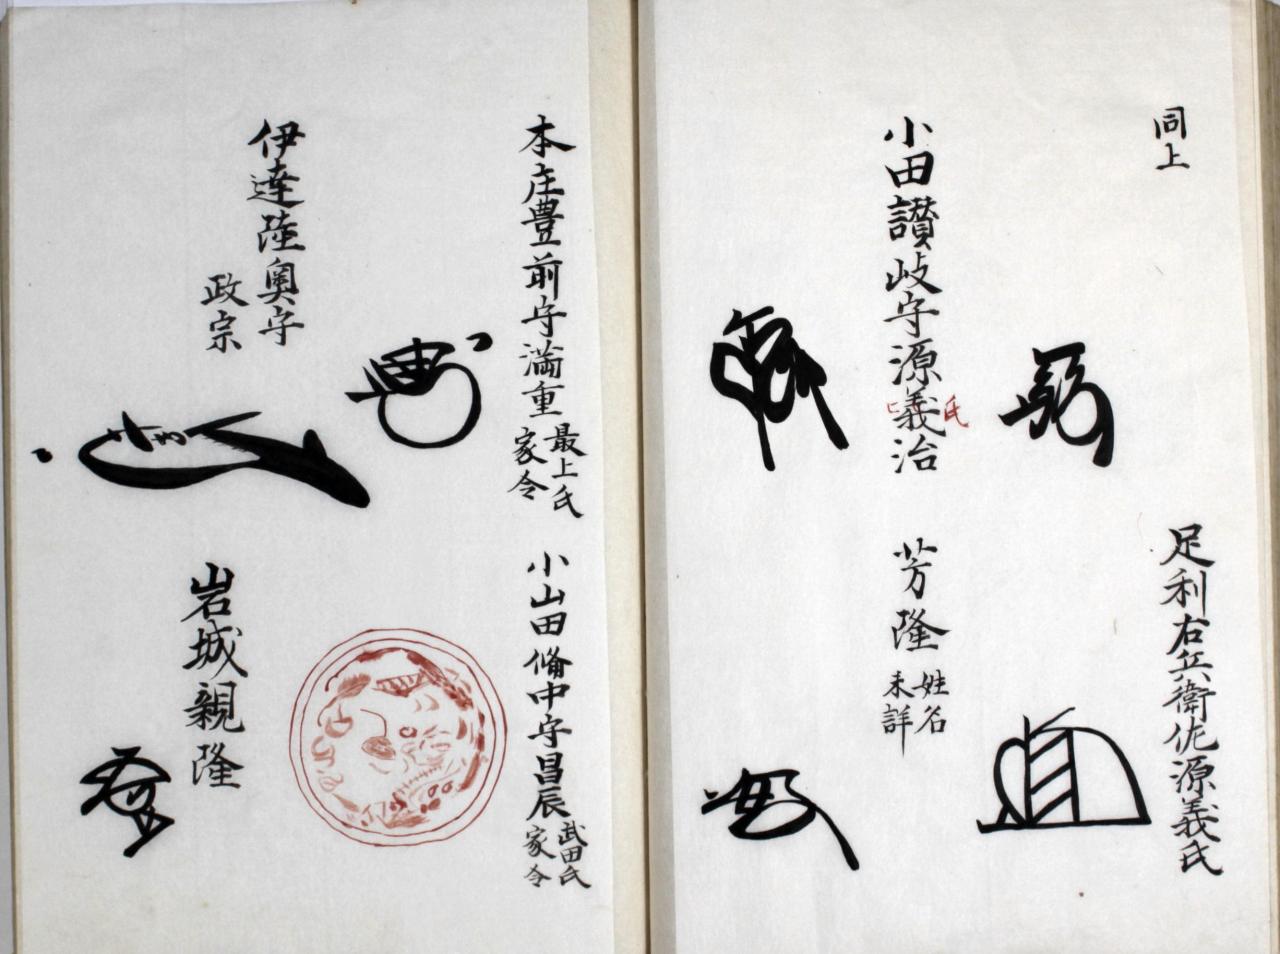 同上
足利右兵衛佐源義氏
小田讃岐守源義治
氏
芳隆
姓名
未詳
本庄豊前守満重
最上氏
家令
小山田備中守昌辰
武田氏
家令
伊達陸奥守
政宗
岩城親隆